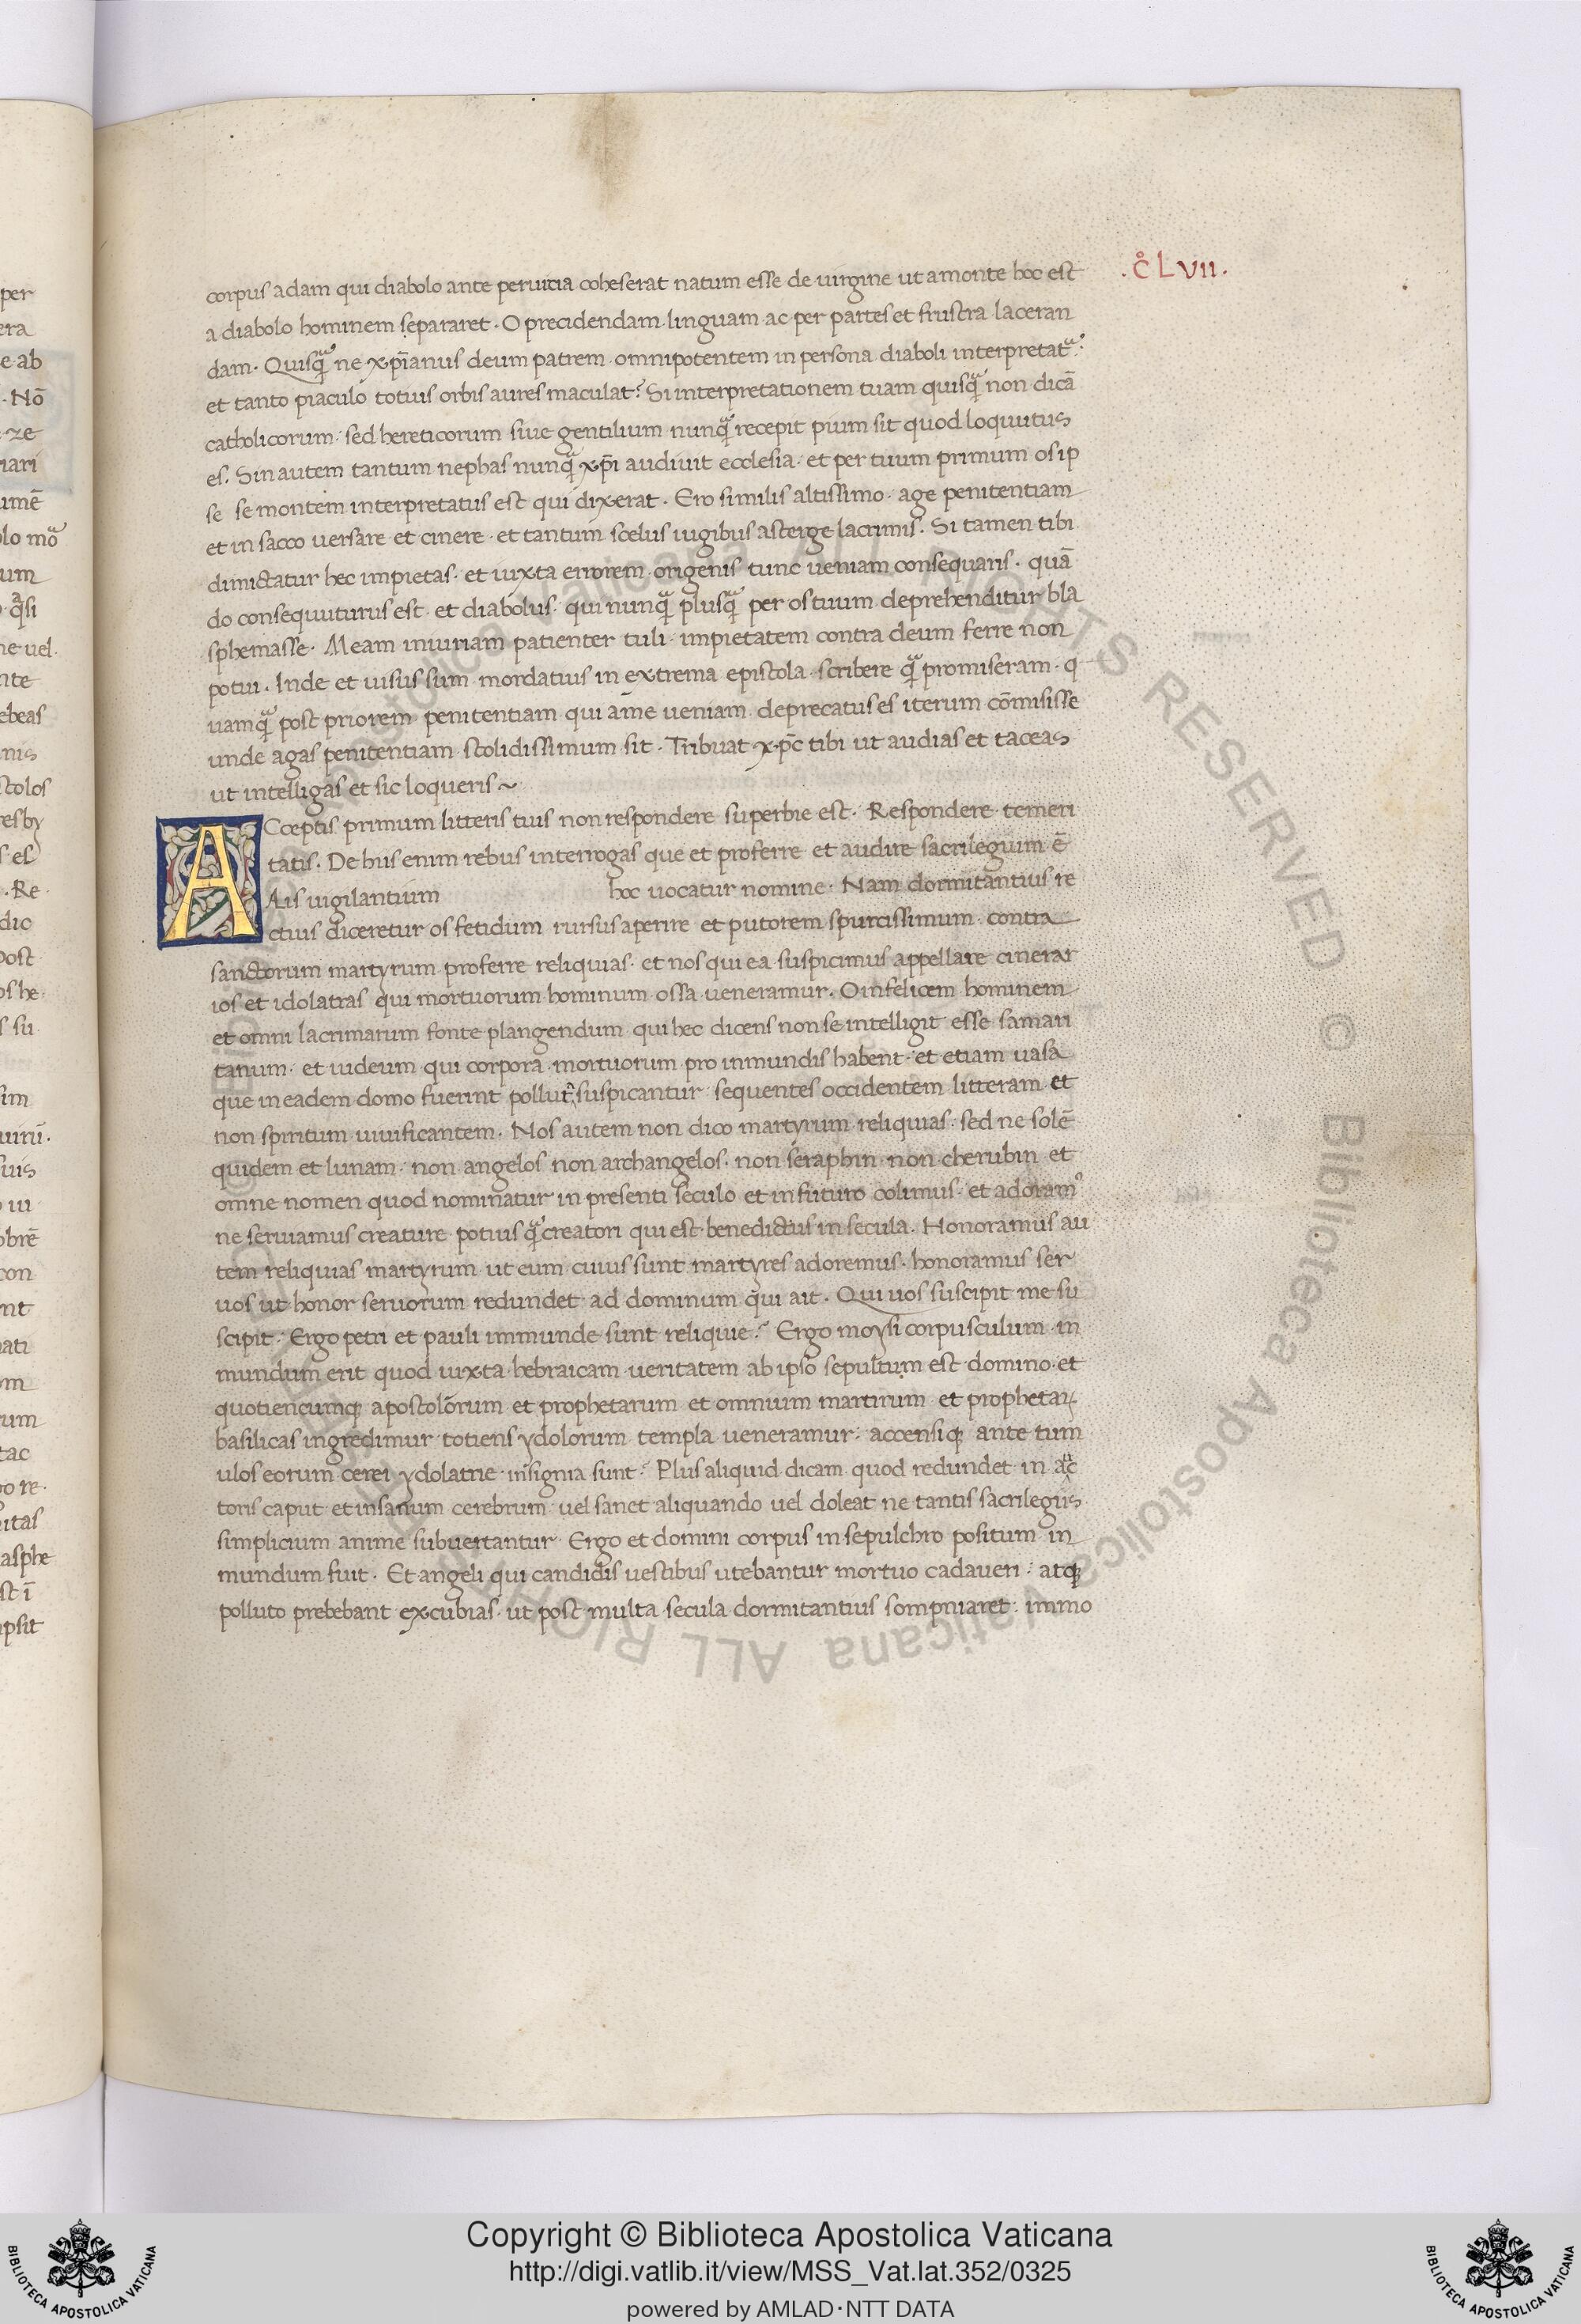 .CͦLVII.
corpus adam qui diabolo ante peruicia coheserat natum esse de uirgine ut amonte hoc est
a diabolo hominem separaret. O precidendam linguam ac per partes et frustra laceran
dam. Quisqᷓ ne xp̄ianus deum patrem omnipotentem in persona diaboli interpretatᷓ.
et tanto piaculo totius orbis aures maculat? Si interpretationem tuam quisqᷓ non dicā
catholicorum sed hereticorum siue gentilium nunqᷓ recepit pium sit quod loquutus
es. Sin autem tantum nephas nunqᷓ xp̄i audiuit ecclesia. et per tuum primum os ip
se se montem interpretatus est qui dixerat. Ero similis altissimo. age penitentiam
et in sacco uersare et cinere. et tantum scelus iugibus asterge lacrimis. Si tamen tibi
dimictatur hec impietas. et iuxta errorem origenis tunc ueniam consequaris. quā
do consequuturus est et diabolus. qui nunqᷓ plusqᷓ per os tuum deprehenditur bla
sphemasse. Meam iniuriam patienter tuli. impietatem contra deum ferre non
potui. Inde et uisus sum mordatius in extrema epistola scribere qᷓ promiseram. q
uamqᷓ post priorem penitentiam qui a me ueniam deprecatus es iterum cōmisisse
unde agas penitentiam stolidissimum sit. Tribuat xp̄c tibi ut audias et taceas
ut intelligas et sic loqueris~
ACceptis primum litteris tuis non respondere superbie est. Respondere temeri
tatis. De hiis enim rebus interrogas que et proferre et audire sacrilegium ē
Ais uigilantium hoc uocatur nomine. Nam dormitantius re
ctius diceretur os fetidum rursus aperire et putorem spurcissimum contra
sanctorum martyrum proferre reliquias. et nos qui ea suspicimus appellare cinerar
ios et idolatras qui mortuorum hominum ossa ueneramur. O infelicem hominem
et omni lacrimarum fonte plangendum qui hec dicens non se intelligit esse samari
tanum. et iudeum qui corpora mortuorum pro inmundis habent. et etiam uasa
que in eadem domo fuerint pollui suspicantur sequentes occidentem litteram et
non spiritum uiuificantem. Nos autem non dico martyrum reliquias. sed ne solē
quidem et lunam. non angelos non archangelos. non seraphin non cherubin et
omne nomen quod nominatur in presenti seculo et in futuro colimus. et adoramꝰ
ne seruiamus creature potius qᷓ creatori qui est benedictus in secula. Honoramus au
tem reliquias martyrum ut eum cuius sunt martyres adoremus. honoramus ser
uos ut honor seruorum redundet ad dominum qui ait. Qui uos suscipit me su
scipit. Ergo petri et pauli immunde sunt reliquie? Ergo moysi corpusculum in
mundum erit quod iuxta hebraicam ueritatem ab ipso sepultum est domino. et
quotienscumqꝫ apostolorum et prophetarum et omnium martirum et prophetaꝝ
basilicas ingredimur totiens ydolorum templa ueneramur. accensiqꝫ ante tum
ulos eorum cerei ydolatrie insignia sunt? Plus aliquid dicam quod redundet in auc
toris caput et insanum cerebrum uel sanet aliquando uel doleat ne tantis sacrilegiis
simplicium anime subuertantur. Ergo et domini corpus in sepulchro positum in
mundum fuit. Et angeli qui candidis uestibus utebantur mortuo cadaueri: atqꝫ
polluto prebebant excubias. ut post multa secula dormitantius sompniaret: immo
Copyright © Biblioteca Apostolica Vaticana
http://digi.vatlib.it/view/MSS_Vat.lat.352/0325
powered by AMLAD·NTT DATA